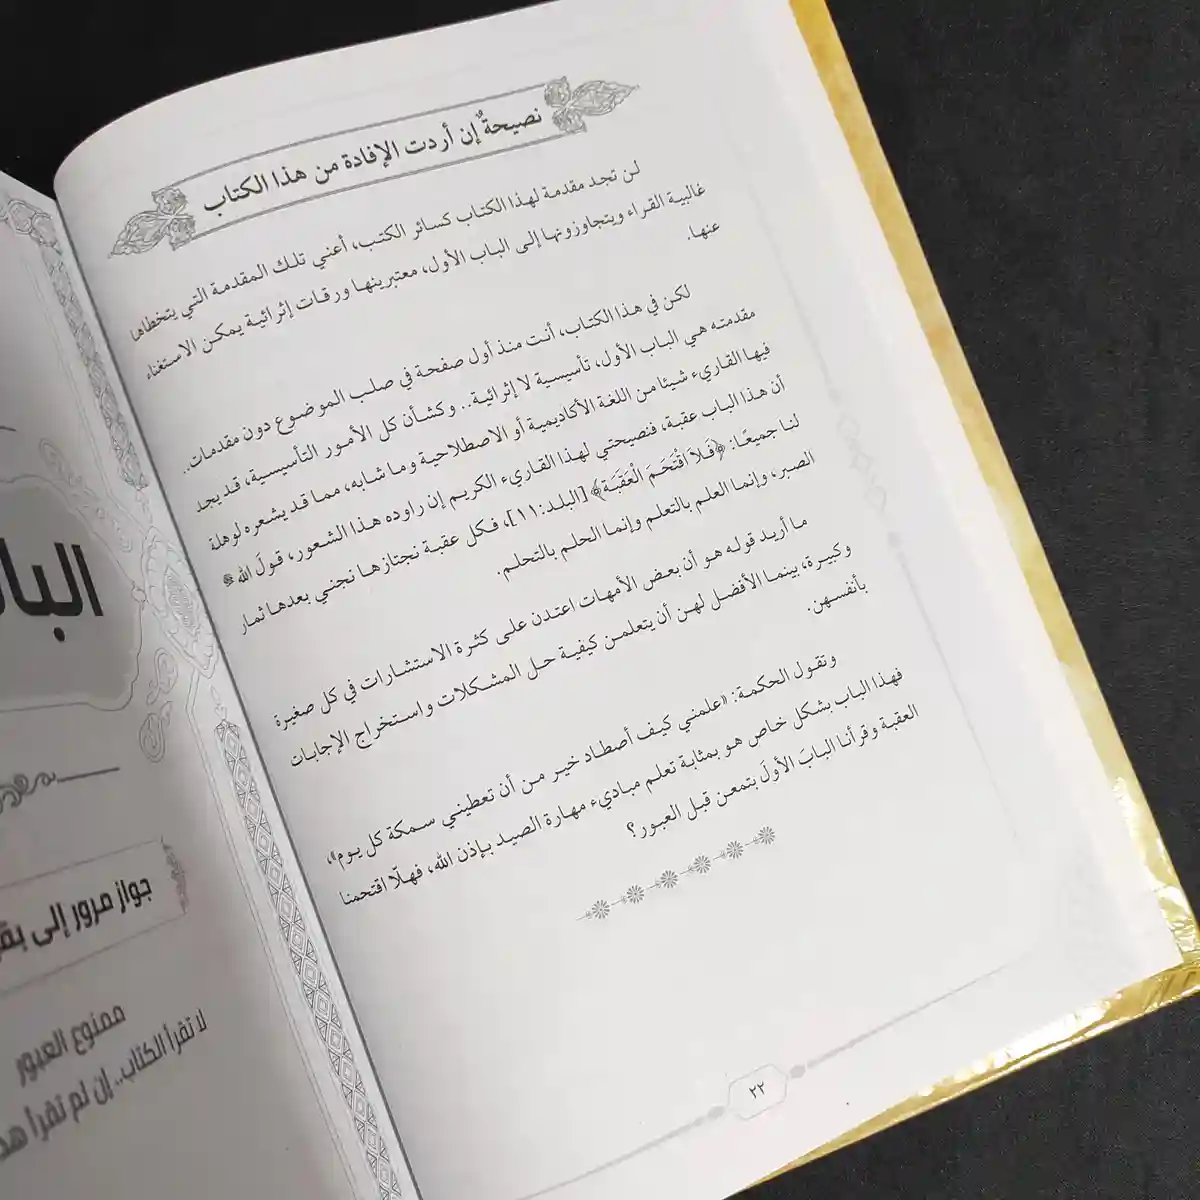 نصيحةٌ إن أردت الإفادة من هذا الكتاب
لن تجد مقدمة لهذا الكتاب كسائر الكتب، أعني تلك المقدمة التي يتخطاها
غالبية القراء ويتجاوزونها إلى الباب الأول، معتبرينها ورقات إثرائية يمكن الاستغناء
عنها.
لكن في هذا الكتاب، أنت منذ أول صفحة في صلب الموضوع دون مقدمات..
مقدمته هي الباب الأول، تأسيسية لا إثرائية.. وكشأن كل الأمور التأسيسية، قد يجد
فيها القاريء شيئا من اللغة الأكاديمية أو الاصطلاحية وما شابه، مما قد يشعره لوهلة
أن هذا الباب عقبة، فنصيحتي لهذا القاريء الكريم إن راوده هذا الشعور، قولَ الله ﷻ
لنا جميعًا: ﴿فَلَا اقْتَحَمَ الْعَقَبَةَ﴾ [البلد:١١]، فكل عقبة نجتازها نجني بعدها ثمار
الصبر، وإنما العلم بالتعلم وإنما الحلم بالتحلم.
ما أريد قوله هو أن بعض الأمهات اعتدن على كثرة الاستشارات في كل صغيرة
وكبيرة، بينما الأفضل لهن أن يتعلمن كيفية حل المشكلات واستخراج الإجابات
بأنفسهن.
وتقول الحكمة: «علمني كيف أصطاد خير من أن تعطيني سمكة كل يوم»،
فهذا الباب بشكل خاص هو بمثابة تعلم مباديء مهارة الصيد بإذن الله، فهلّا اقتحمنا
العقبة وقرأنا البابَ الأولَ بتمعن قبل العبور؟
٢٢
جواز مرور إلى
ممنوع العبور
لا تقرأ الكتاب.. إن لم تقرأ